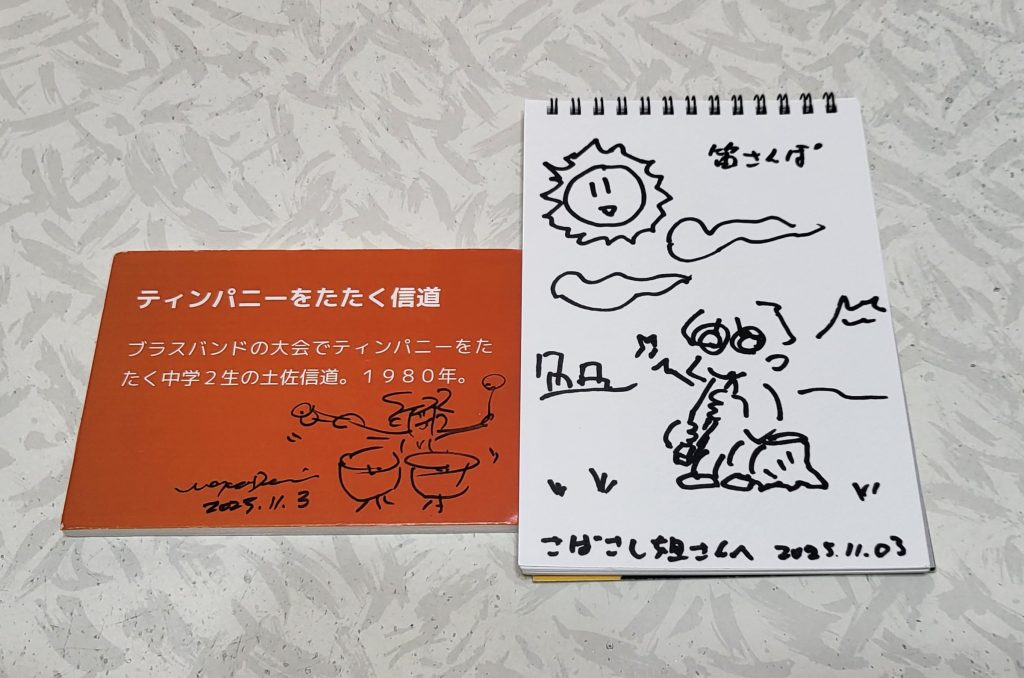 ティンパニーをたたく信道
ブラスバンドの大会でティンパニーをた
たく中学２生の土佐信道。１９８０年。
2025.11.3
笛さんぽ
さばさし姫さんへ 2025.11.03